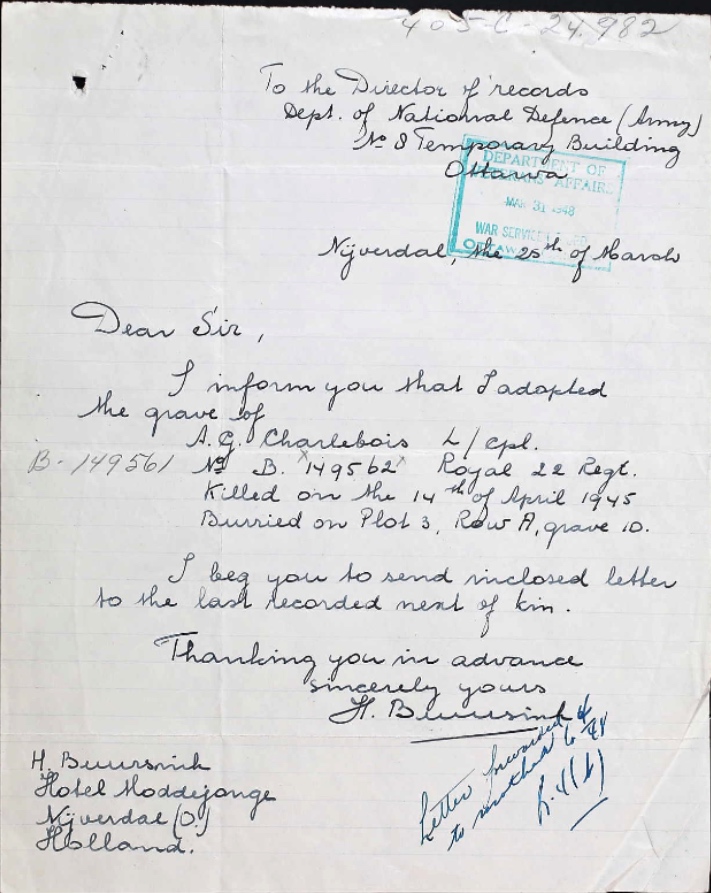 405-C-24.982
To the Director of records
Dept. of National Defence (Army)
No 8 Temporary Building
Ottawa
DEPARTMENT OF
VETERANS AFFAIRS
MAR 31 1948
WAR SERVICE
OTTAWA
Nijverdal, the 25th of March
Dear Sir,
I inform you that I adopted
the grave of
A.G. Charlebois L/cpl.
B-149561 No B. 149562 Royal 22 Regt.
Killed on the 14th of April 1945
Burried on Plot 3, Row A, grave 10.
I beg you to send inclosed letter
to the last recorded next of kin.
Thanking you in advance
sincerely yours
H. Buursink
Letter forwarded
to mother 6/4/48
H. Buursink
Hotel Moddejonge
Nijverdal (O.)
Holland.